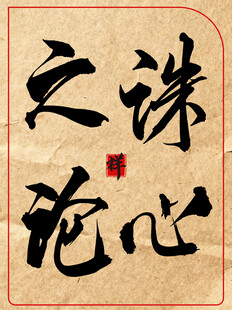 诛心
之论
祥